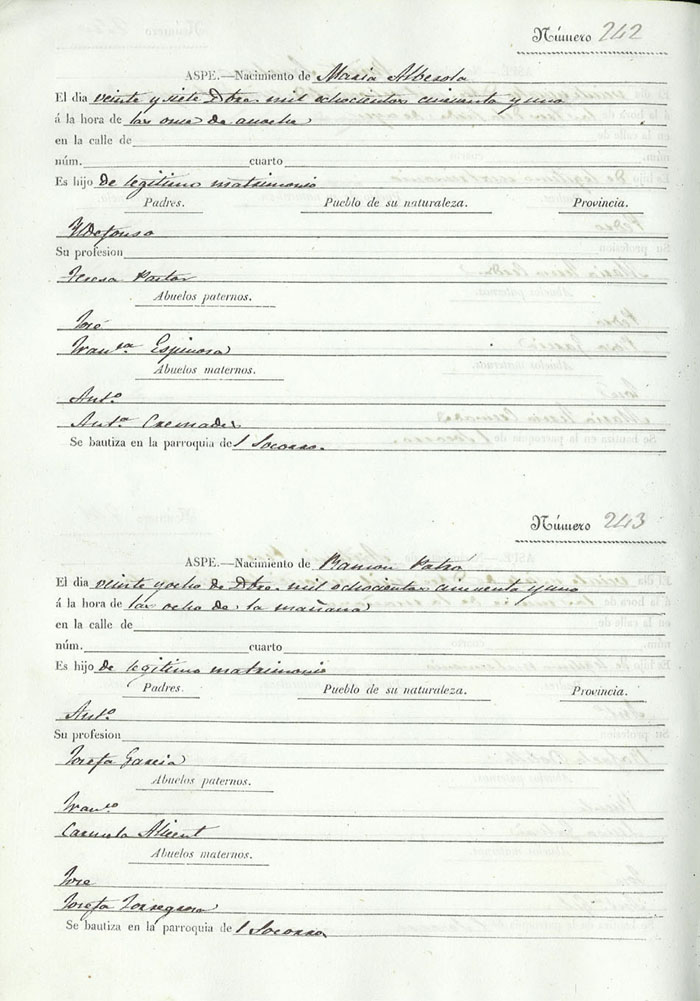 Número 242
ASPE.—Nacimiento de Maria Alberola
El dia veinte y siete Dbre. mil ochocientos cincuenta y uno
á la hora de las once de anoche
en la calle de
núm. cuarto
Es hijo de legitimo matrimonio
Padres. Pueblo de su naturaleza. Provincia.
Yldefonso
Su profesion
Teresa Pastor
Abuelos paternos.
José
Fran.ca Espinosa
Abuelos maternos.
Ant.o
Ant.a Cremades
Se bautiza en la parroquia del Socorro.
Número 243
ASPE.—Nacimiento de Ramon
El dia veinte y ocho de Dbre. mil ochocientos cincuenta y uno
á la hora de las ocho de la mañana
en la calle de
núm. cuarto
Es hijo de legitimo matrimonio
Padres. Pueblo de su naturaleza. Provincia.
Ant.o
Su profesion
Josefa Garcia
Abuelos paternos.
Fran.co
Carmela
Abuelos maternos.
Jose
Josefa Torregrosa
Se bautiza en la parroquia del Socorro